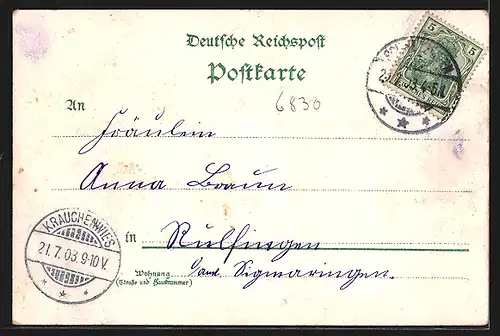 Deutsche Reichspost
Postkarte
5 5
21.
6830
An
Fräulein
Anna Braun
KRAUCHENWIES
21.7.03.9-10V.
in Rulfingen
Wohnung
(Straße und Hausnummer)
Sigmaringen.